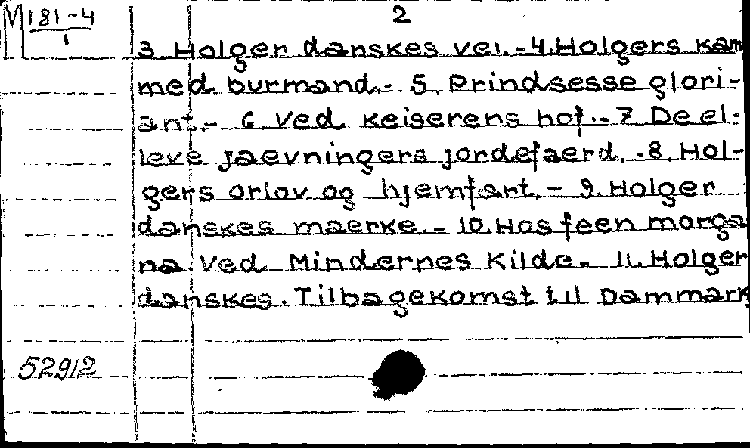 M 181-4
1
2
3 Holger danskes vei. - 4. Holgers kam
med burmand. - 5. Prindsesse glori-
ant. - 6 Ved Keiserens hof. - 7 De el-
leve jaevningers jordefaerd. - 8. Hol-
gers orlov og hjemfart. - 9. Holger
danskes maerke. - 10. Hos feen morga
na Ved Mindernes Kilde. 11. Holger
danskes. Tilbagekomst til Dammark
52912